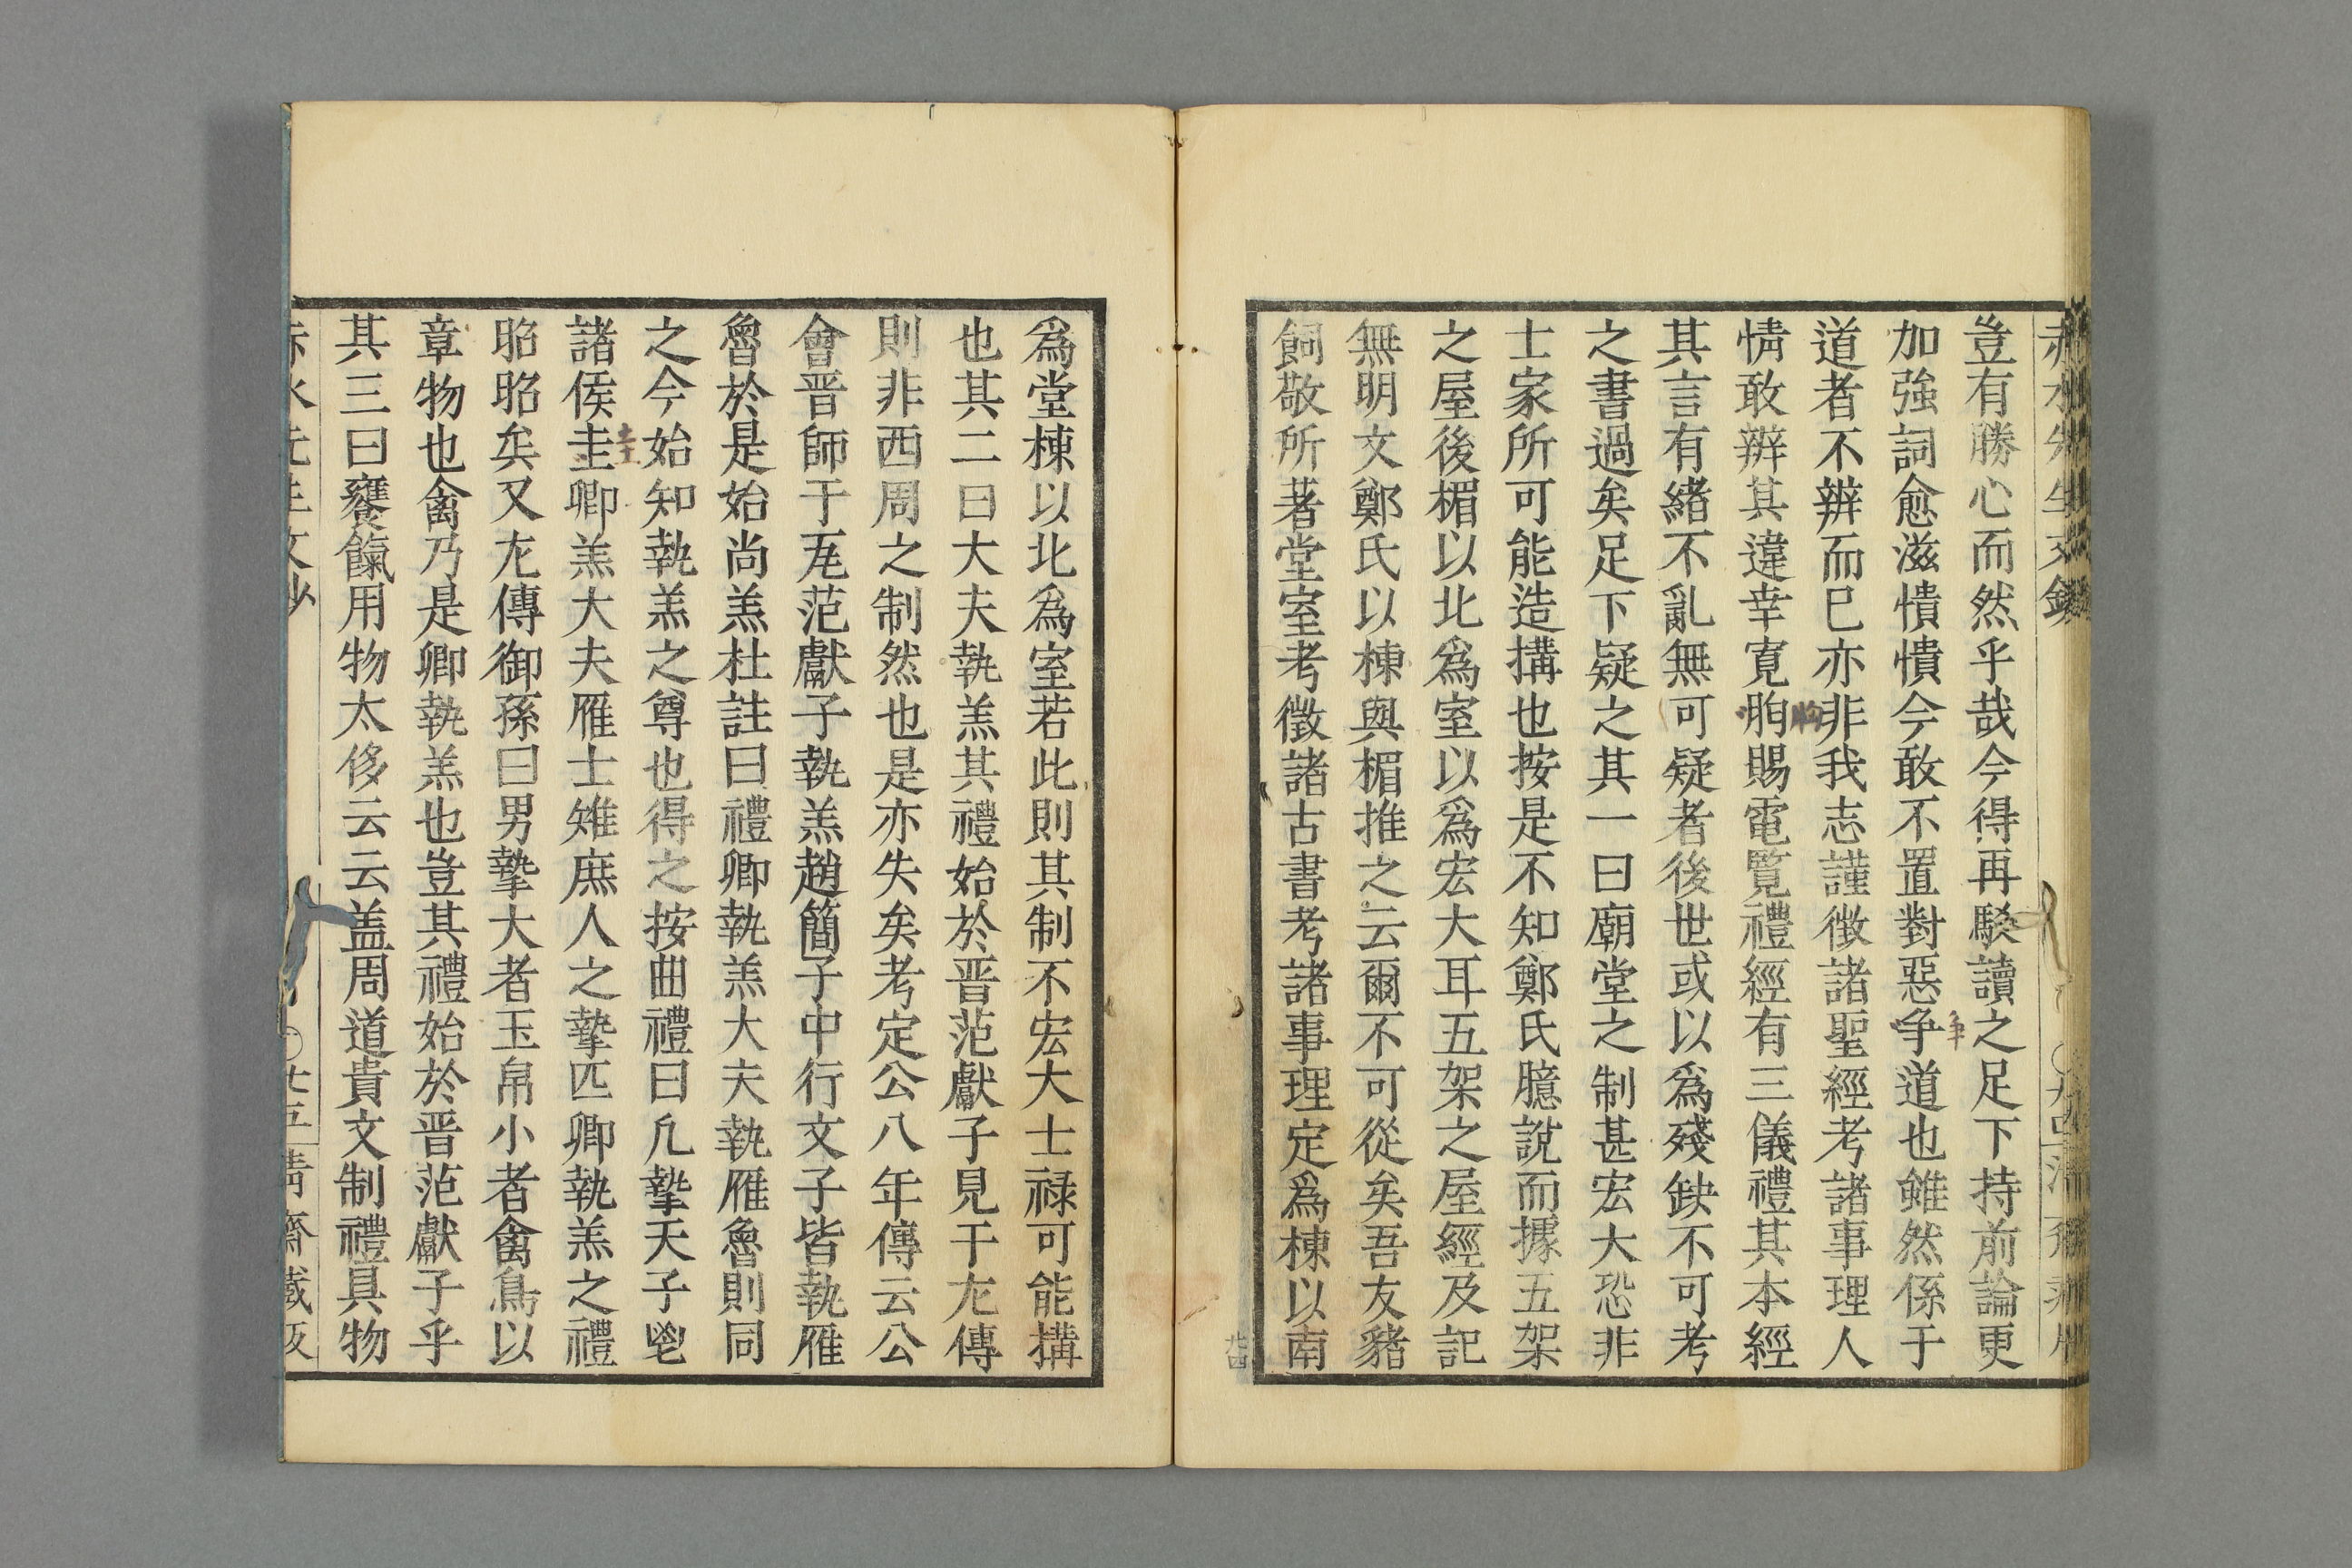 豈有勝心而然乎哉今得再駁讀之足下持前論更
加強詞愈滋憒憒今敢不置對惡爭道也雖然係于
道者不辨而巳亦非我志謹徵諸聖經考諸事理人
情敢辨其違幸寛胷賜電覧禮經有三儀禮其本經
其言有緒不亂無可疑者後世或以爲殘缺不可考
之書過矣足下疑之其一曰廟堂之制甚宏大恐非
士家所可能造搆也按是不知鄭氏臆説而據五架
之屋後楣以北爲室以爲宏大耳五架之屋經及記
無明文鄭氏以棟與楣推之云爾不可從矣吾友豬
飼敬所著堂室考徵諸古書考諸事理定爲棟以南
爲堂棟以北爲室若此則其制不宏大士禄可能搆
也其二曰大夫執羔其禮始於晋范獻子見于左傳
則非西周之制然也是亦失矣考定公八年傳云公
會晋師于瓦范獻子執羔趙簡子中行文子皆執雁
魯於是始尚羔杜註曰禮卿執羔大夫執雁魯則同
之今始知執羔之尊也得之按曲禮曰凡摯天子鬯
諸侯圭卿羔大夫雁士雉庶人之摯匹卿執羔之禮
昭昭矣又左傳御孫曰男摯大者玉帛小者禽鳥以
章物也禽乃是卿執羔也豈其禮始於晋范獻子乎
其三曰饔餼用物太侈云云盖周道貴文制禮具物